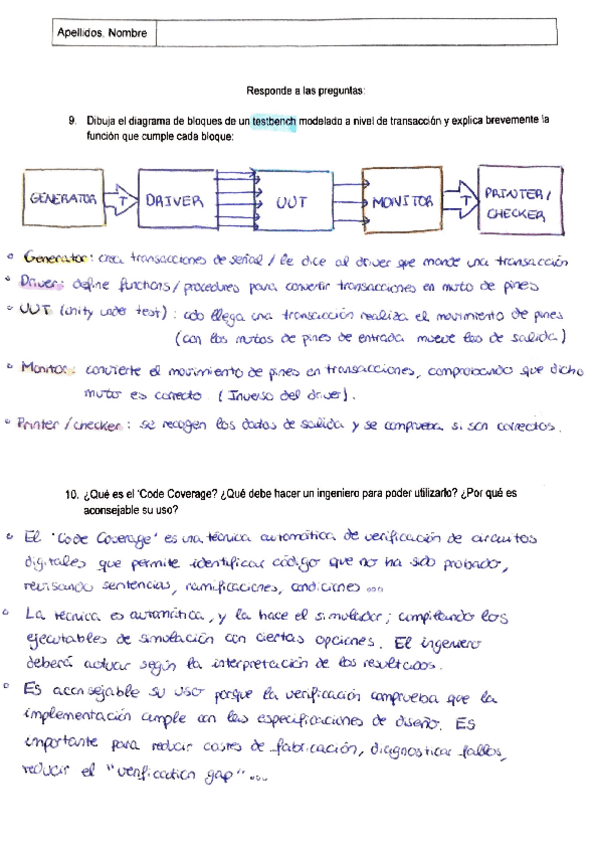 Apellidos, Nombre
Responde a las preguntas:
9. Dibuja el diagrama de bloques de un testbench modelado a nivel de transacción y explica brevemente la
función que cumple cada bloque:
GENERATOR T DRIVER UUT MONITOR T PRINTER/
CHECKER
Generator: crea transacciones de señal / le dice al driver que mande una transacción
Driver: define functions / procedures para convertir transacciones en mvto de pines
UUT (unity under test): cdo llega una transacción realiza el movimiento de pines
(con los mvtos de pines de entrada mueve los de salida)
Monitor: convierte el movimiento de pines en transacciones, comprobando que dicho
mvto es correcto. (Inverso del driver).
Printer / checker: se recogen los datos de salida y se comprueba si son correctos.
10. ¿Qué es el 'Code Coverage? ¿Qué debe hacer un ingeniero para poder utilizarlo? ¿Por qué es
aconsejable su uso?
El 'Code Coverage' es una técnica automática de verificación de circuitos
digitales que permite identificar código que no ha sido probado,
revisando sentencias, ramificaciones, condiciones ...
La técnica es automática, y la hace el simulador; compilando los
ejecutables de simulación con ciertas opciones. El ingeniero
deberá actuar según la interpretación de los resultados.
Es aconsejable su uso porque la verificación comprueba que la
implementación cumple con las especificaciones de diseño. Es
importante para reducir costes de fabricación, diagnosticar fallos,
reducir el "verification gap"...